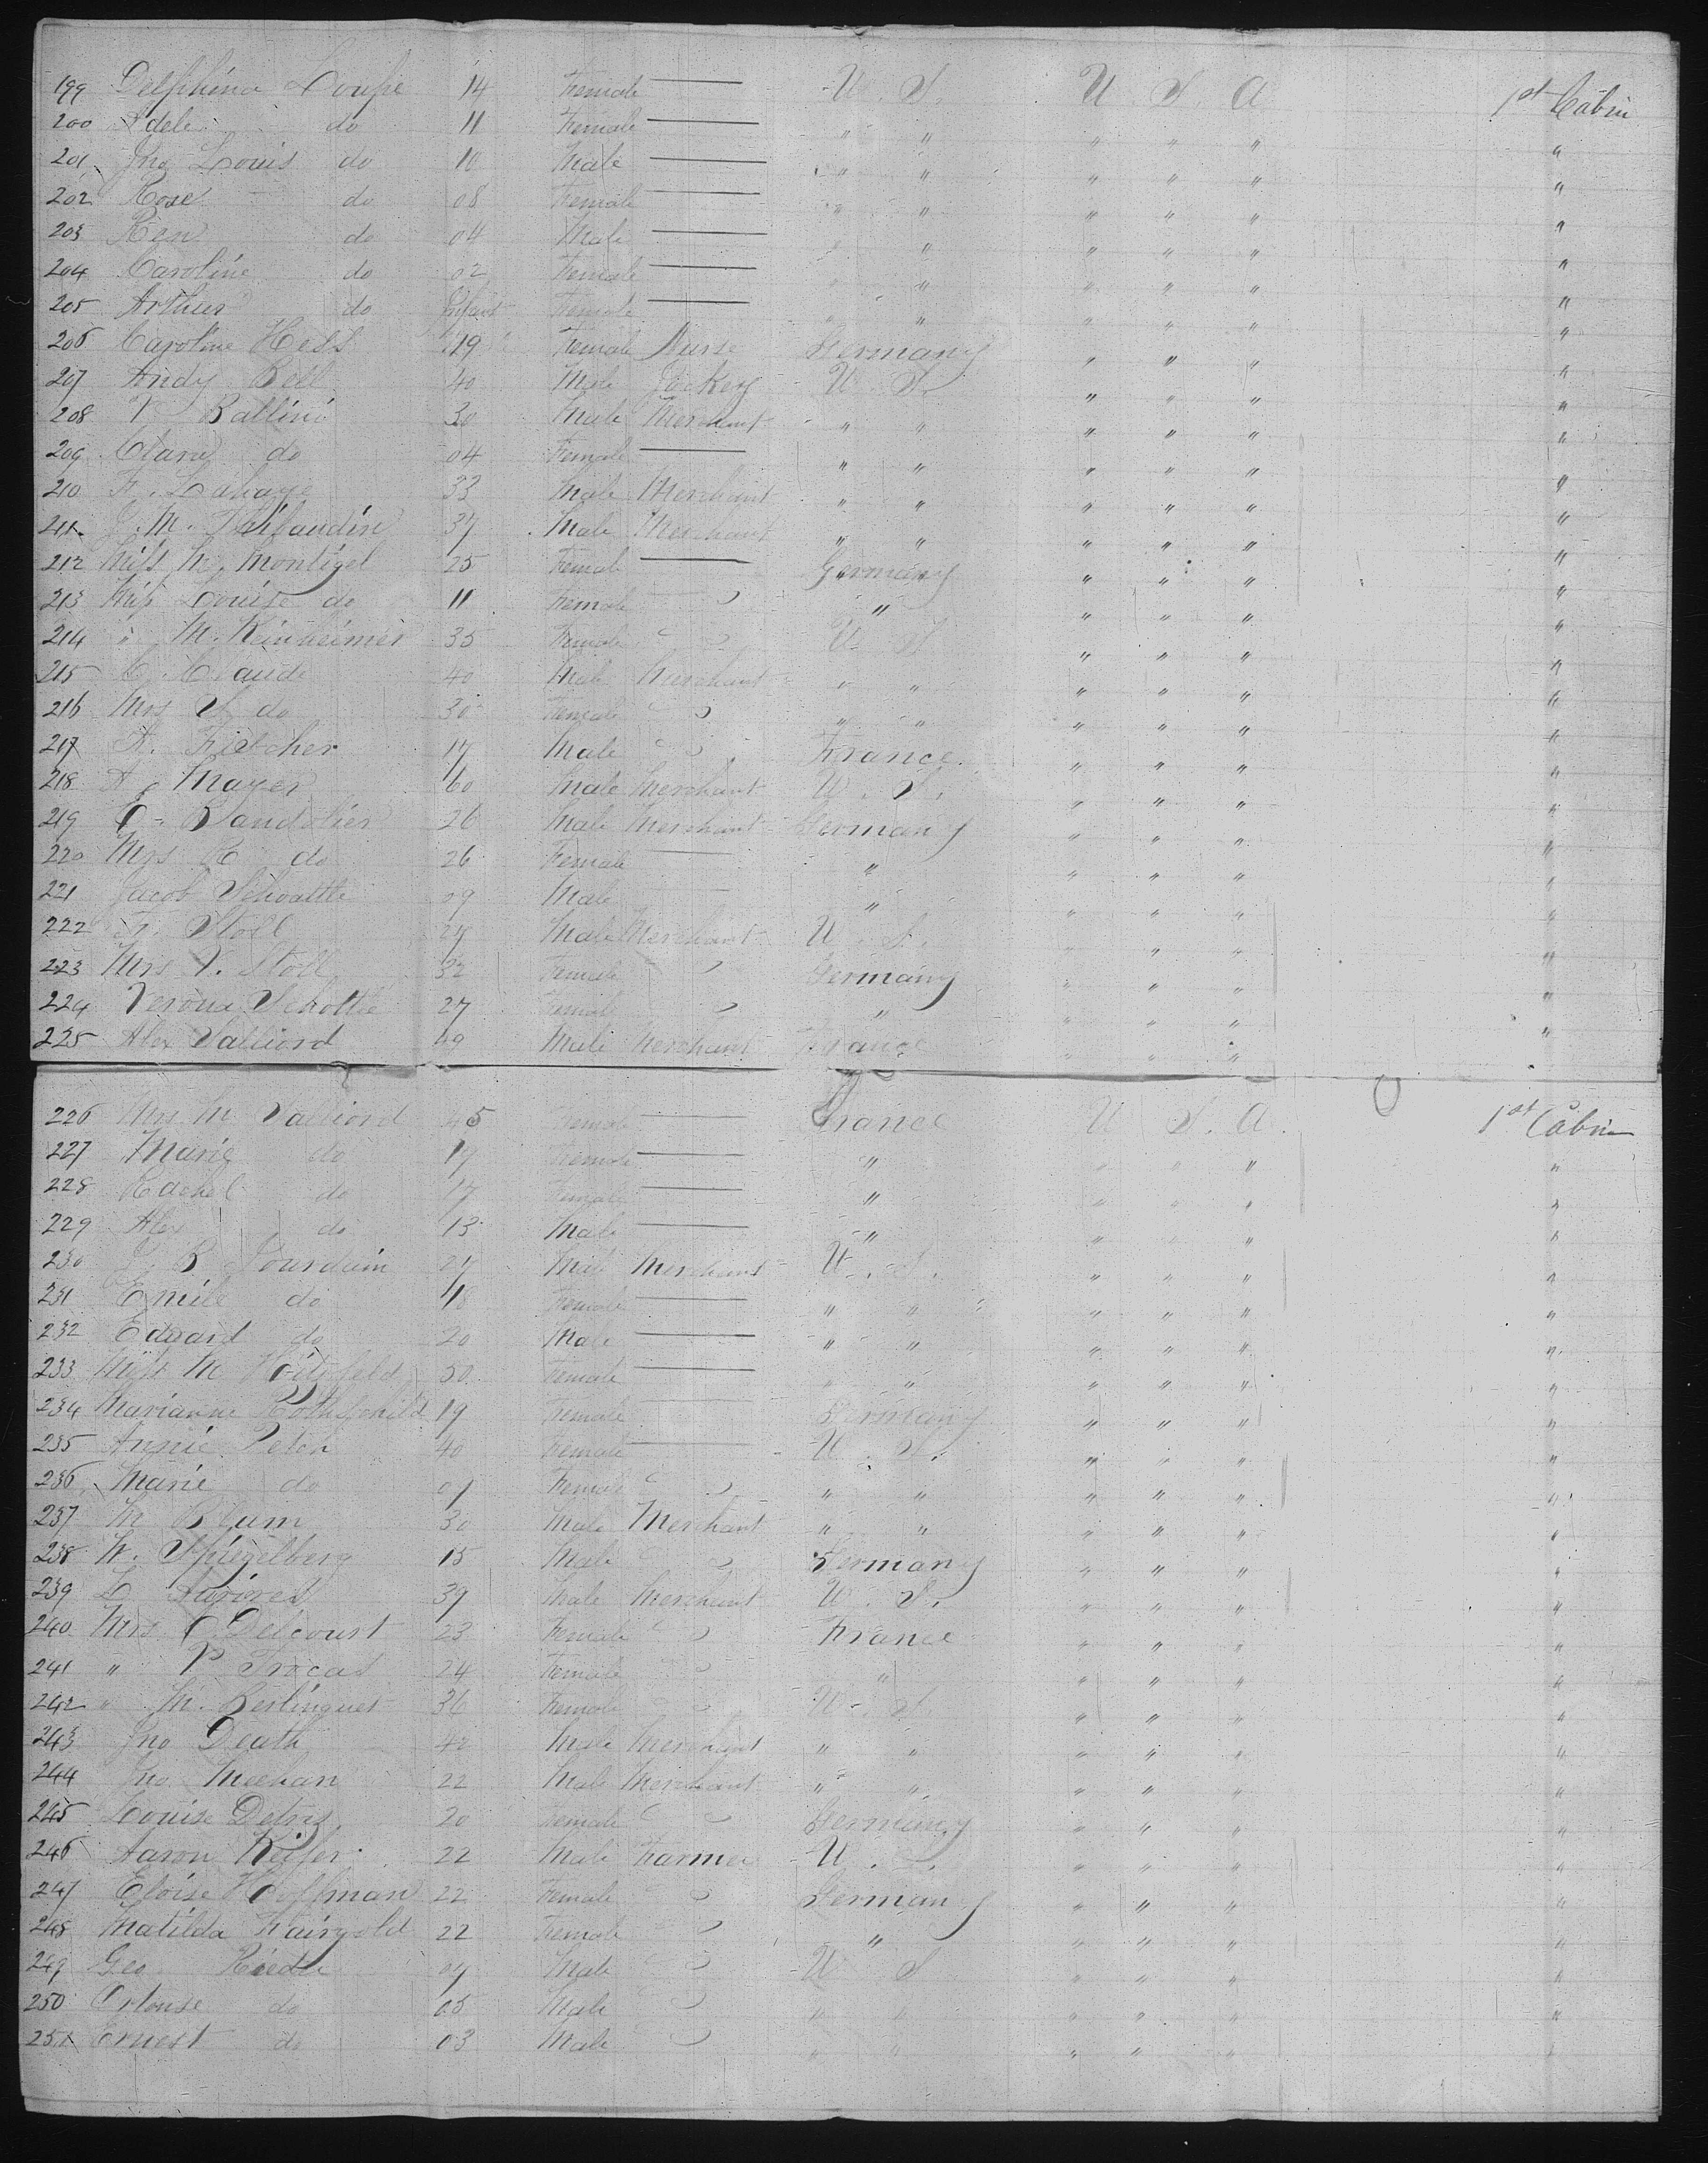 199 Delphina Loupe 14 Female — U. S. U. S. A 1st Cabin
200 Adele do 11 Female — " " " " " "
201 Jno Louis do 10 Male — " " " " " "
202 Rose do 08 Female — " " " " " "
203 Ren do 04 Male — " " " " " "
204 Caroline do 02 Female — " " " " " "
205 Arthur do Infant Female — " " " " " "
206 Caroline Hess 19 Female Nurse Germany " " " "
207 Andy Bell 40 Male Jockey U. S. " " " "
208 V Ballini 30 Male Merchant " " " " " "
209 Clara do 04 Female — " " " " " "
210 F. Lahaye 33 Male Merchant " " " " " "
211 J. M. Thibaudin 37 Male Merchant " " " " " "
212 Miss M. Montigel 25 Female — Germany " " " "
213 Miss Louise do 11 Female " " " " "
214 " M. Reinheimer 35 Female U S " " " "
215 C. Claude 40 Male Merchant " " " " " "
216 Mrs S do 30 Female " " " " " "
217 A. Fletcher 17 Male France " " " "
218 A Mayer 60 Male Merchant U. S. " " " "
219 O. Bandolier 26 Male Merchant Germany " " " "
220 Mrs R do 26 Female — " " " " "
221 Jacob 09 Male — " " " " "
222 Fr. Stoll 27 Male Merchant U. S. " " " "
223 Mrs V. Stoll 32 Female Germany " " " "
224 Verona Schottle 27 Female " " " " "
225 Alex Valliord 49 Male Merchant France " " " "
226 Mrs M Valliord 45 Female — France U S. A. 1st Cabin
227 Marie do 19 Female — " " " " "
228 Rachel do 17 Female — " " " " "
229 Alex do 13 Male — " " " " "
230 J. B. Jourdain 07 Male Merchant U. S. " " " "
231 Emile do 18 Female — " " " " " "
232 Edgard do 20 Male — " " " " " "
233 Miss M 50 Female — " " " " " "
234 Marianne Rothschild 19 Female — Germany " " " "
235 Annie Petch 40 Female — U. S. " " " "
236 Marie do 09 Female " " " " " "
237 M Blum 30 Male Merchant " " " " " "
238 W. Spiegelberg 15 Male Germany " " " "
239 L 39 Male Merchant U. S. " " " "
240 Mrs C Delcourt 23 Female France " " " "
241 " P Trocas 24 Female " " " " "
242 " M. Berlinguet 36 Female U. S " " " "
243 Jno Death 42 Male Merchant " " " " " "
244 Jno Meehan 22 Male Merchant " " " " " "
245 Louise 20 Female Germany " " " "
246 Aaron Keifer 22 Male Farmer U. S. " " " "
247 Eloise Hoffman 22 Female Germany " " " "
248 Matilda Fairgold 22 Female " " " " "
249 Geo Riedle 07 Male U S " " " "
250 Ortouse do 05 Male " " " " " "
251 Ernest do 03 Male " " " " " "